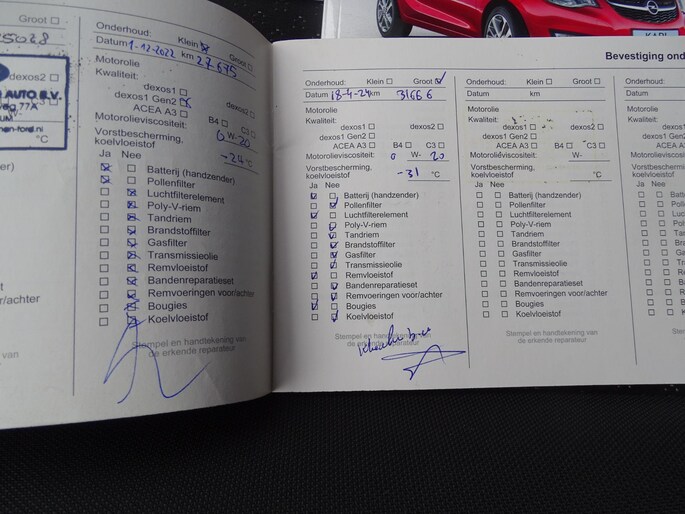 Groot
5028
dexos2
AUTO B.V.
weg 77A
UM
nen-ford.nl
°C
e)
n/achter
van
Onderhoud: Klein Groot
Datum 1-12-2022 km 27675
Motorolie
Kwaliteit:
dexos1 dexos2
dexos1 Gen2
ACEA A3 B4 C3
Motorolieviscositeit: 0 W- 20
Vorstbescherming,
koelvloeistof -24 °C
Ja Nee
Batterij (handzender)
Pollenfilter
Luchtfilterelement
Poly-V-riem
Tandriem
Brandstoffilter
Gasfilter
Transmissieolie
Remvloeistof
Bandenreparatieset
Remvoeringen voor/achter
Bougies
Koelvloeistof
Stempel en handtekening van
de erkende reparateur
KARL
Bevestiging ond
Onderhoud: Klein Groot
Datum 18-4-24 km 31666
Motorolie
Kwaliteit:
dexos1 dexos2
dexos1 Gen2
ACEA A3 B4 C3
Motorolieviscositeit: 0 W- 20
Vorstbescherming,
koelvloeistof -31 °C
Ja Nee
Batterij (handzender)
Pollenfilter
Luchtfilterelement
Poly-V-riem
Tandriem
Brandstoffilter
Gasfilter
Transmissieolie
Remvloeistof
Bandenreparatieset
Remvoeringen voor/achter
Bougies
Koelvloeistof
Stempel en handtekening van
de erkende reparateur
Onderhoud: Klein Groot
Datum km
Motorolie
Kwaliteit:
dexos1 dexos2
dexos1 Gen2
ACEA A3 B4 C3
Motorolieviscositeit: W-
Vorstbescherming,
koelvloeistof °C
Ja Nee
Batterij (handzender)
Pollenfilter
Luchtfilterelement
Poly-V-riem
Tandriem
Brandstoffilter
Gasfilter
Transmissieolie
Remvloeistof
Bandenreparatieset
Remvoeringen voor/achter
Bougies
Koelvloeistof
Stempel en handtekening van
de erkende reparateur
Onderhoud:
Datum
Motorolie
Kwaliteit:
Ja Nee